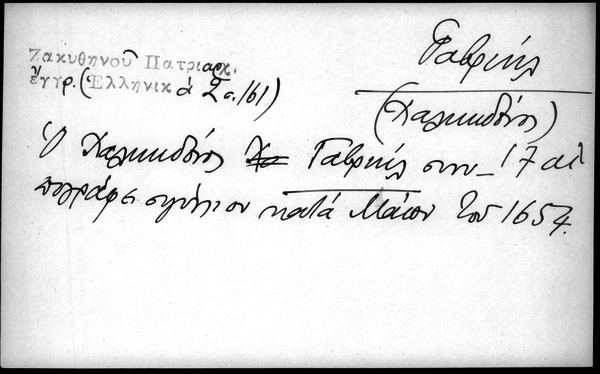 Ζακυθηνοῦ Πατριαρχ.
ἔγγρ. (Ἑλληνικά 2 σ. 161)
Γαβριήλ
(Χαλκηδόνος)
Ὁ Χαλκηδόνος Γαβριήλ συν- 17 αἰ
πογράφει σιγίλλιον κατά Μάϊον τοῦ 1654.